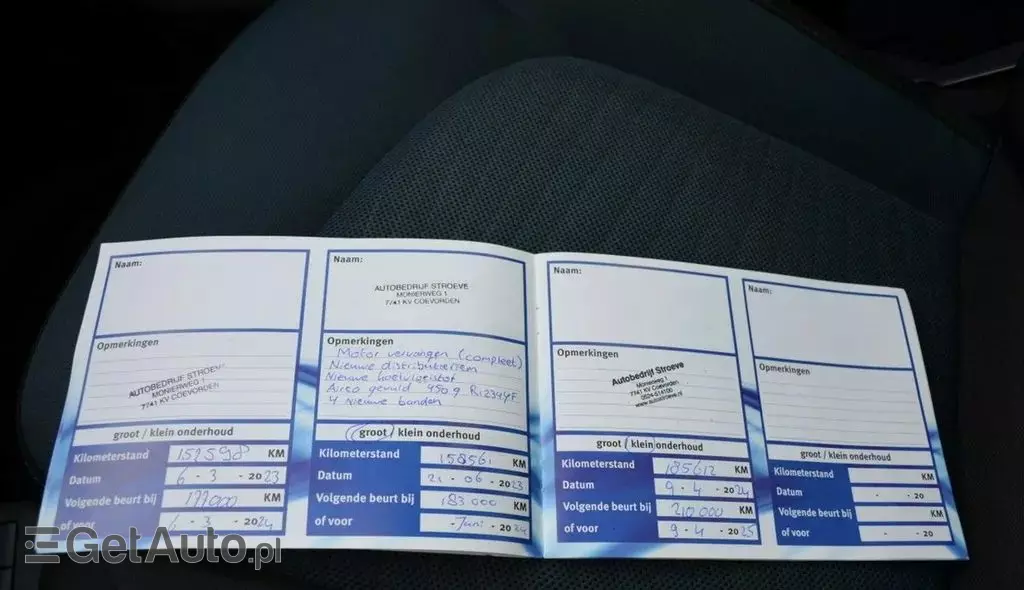 Naam:
Opmerkingen
AUTOBEDRIJF STROEVE
MONIERWEG 1
7741 KV COEVORDEN
groot / klein onderhoud
Kilometerstand KM
Datum 6 - 3 - 2023
Volgende beurt bij KM
of voor 6 - 3 - 2024
Naam:
AUTOBEDRIJF STROEVE
MONIERWEG 1
7741 KV COEVORDEN
Opmerkingen
Motor vervangen (compleet)
Nieuwe distributieriem
Nieuwe koelvloeistof
Airco gevuld 450 g R1234YF
4 Nieuwe banden
groot / klein onderhoud
Kilometerstand 158561 KM
Datum 21 - 06 - 2023
Volgende beurt bij 183 000 KM
of voor - Juni - 2024
Naam:
Opmerkingen
Autobedrijf Stroeve
Monierweg 1
7741 KV Coevorden
0524-514100
www.autostroeve.nl
groot / klein onderhoud
Kilometerstand 185612 KM
Datum 9 - 4 - 2024
Volgende beurt bij 210 000 KM
of voor 9 - 4 - 2025
Naam:
Opmerkingen
groot / klein onderhoud
Kilometerstand KM
Datum - - 20
Volgende beurt bij KM
of voor - - 20
GetAuto.pl